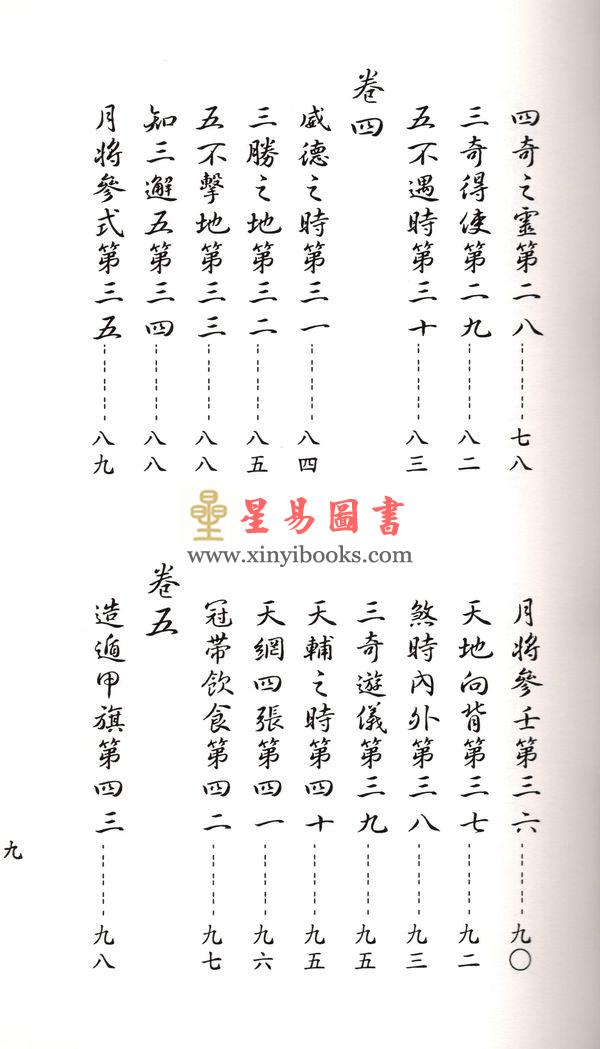 四奇之靈第二八 七八
三奇得使第二九 八二
五不遇時第三十 八三
卷四
威德之時第三一 八四
三勝之地第三二 八五
五不擊地第三三 八八
知三避五第三四 八八
月將參式第三五 八九
月將參壬第三六 九〇
天地向背第三七 九二
煞時內外第三八 九三
三奇遊儀第三九 九五
天輔之時第四十 九五
天網四張第四一 九六
冠帶飲食第四二 九七
卷五
造遁甲旗第四三 九八
九
星易圖書
www.xinyibooks.com